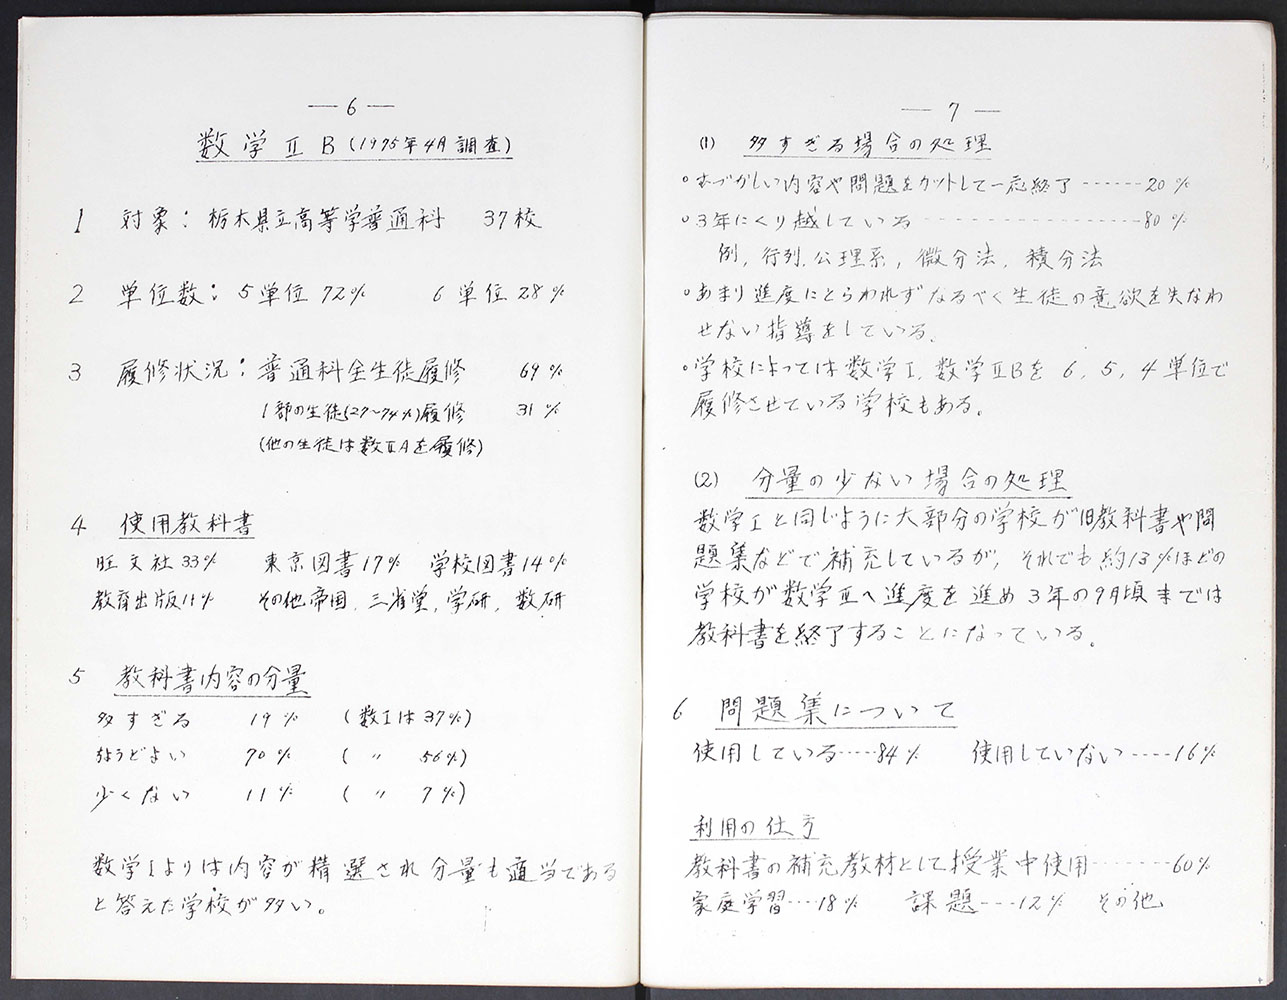 ― 6 ―
数学ⅡB(1975年4月調査)
1 対象: 栃木県立高等学普通科 37校
2 単位数: 5単位 72% 6単位 28%
3 履修状況: 普通科全生徒履修 69%
1部の生徒(27~74%)履修 31%
(他の生徒は数ⅡAを履修)
4 使用教科書
旺文社33% 東京図書17% 学校図書14%
教育出版11% その他帝国, 三省堂, 学研, 数研
5 教科書内容の分量
多すぎる 19% (数Ⅰは37%)
ちょうどよい 70% ( 〃 56%)
少くない 11% ( 〃 7%)
数学Ⅰよりは内容が精選され分量も適当である
と答えた学校が多い。
― 7 ―
(1) 多すぎる場合の処理
○むづかしい内容や問題をカットして一応終了 ------20%
○3年にくり越している ------------------80%
例, 行列, 公理系, 微分法, 積分法
○あまり進度にとらわれずなるべく生徒の意欲を失なわ
せない指導をしている。
○学校によっては数学Ⅰ, 数学ⅡBを 6, 5, 4単位で
履修させている学校もある。
(2) 分量の少ない場合の処理
数学Ⅰと同じように大部分の学校が旧教科書や問
題集などで補充しているが, それでも約13%ほどの
学校が数学Ⅲへ進度を進め3年の9月頃までは
教科書を終了することになっている。
6 問題集について
使用している-----84% 使用していない-----16%
利用の仕方
教科書の補充教材として授業中使用--------60%
家庭学習----18% 課題----12% その他